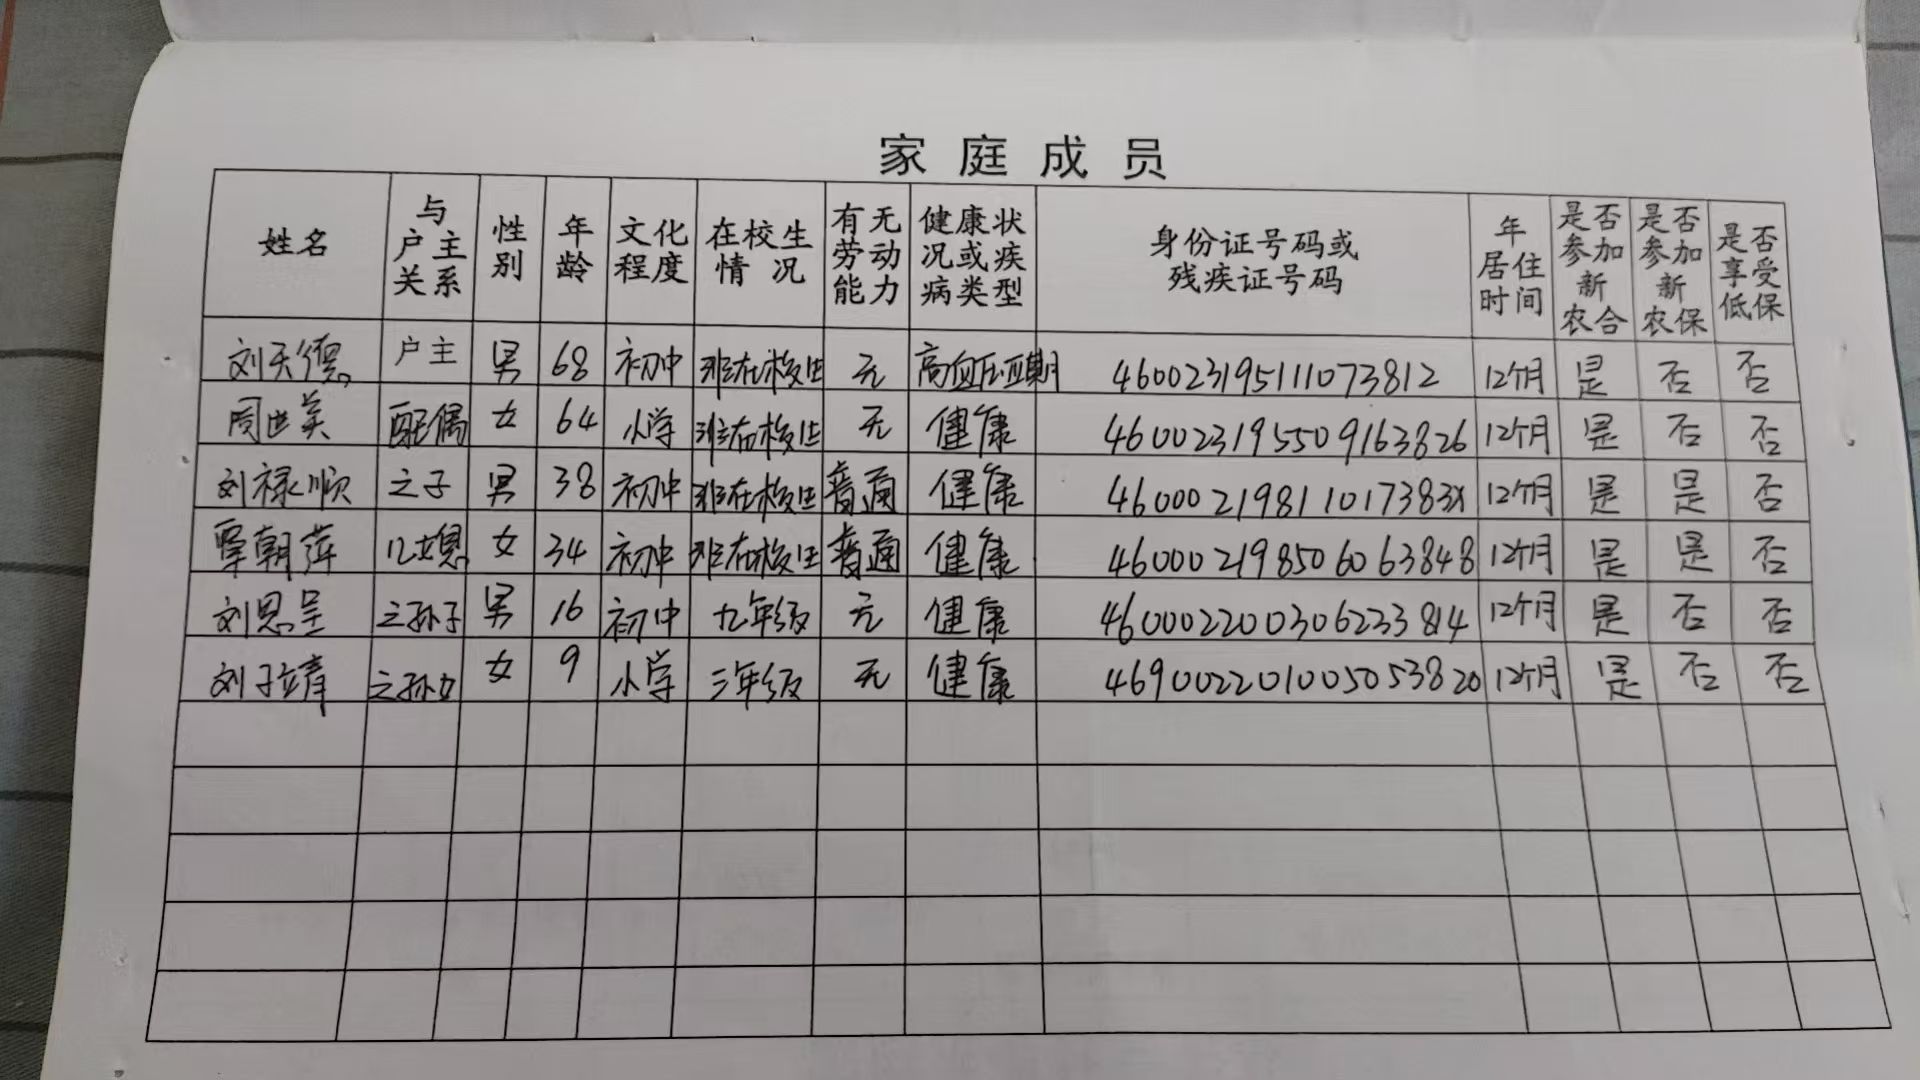 家庭成员
姓名 与户主关系 性别 年龄 文化程度 在校生情况 有无劳动能力 健康状况或疾病类型 身份证号码或残疾证号码 年居住时间 是否参加新农合 是否参加新农保 是否享受低保
刘天德 户主 男 68 初中 非在校生 无 高血压亚期 460023195111073812 12个月 是 否 否
周世美 配偶 女 64 小学 非在校生 无 健康 460023195509163826 12个月 是 否 否
刘禄顺 之子 男 38 初中 非在校生 普通 健康 46000219811017383X 12个月 是 是 否
覃朝萍 儿媳 女 34 初中 非在校生 普通 健康 460002198506063848 12个月 是 是 否
刘恩呈 之孙子 男 16 初中 九年级 无 健康 460002200306233814 12个月 是 否 否
刘子靖 之孙女 女 9 小学 三年级 无 健康 469002201005053820 12个月 是 否 否